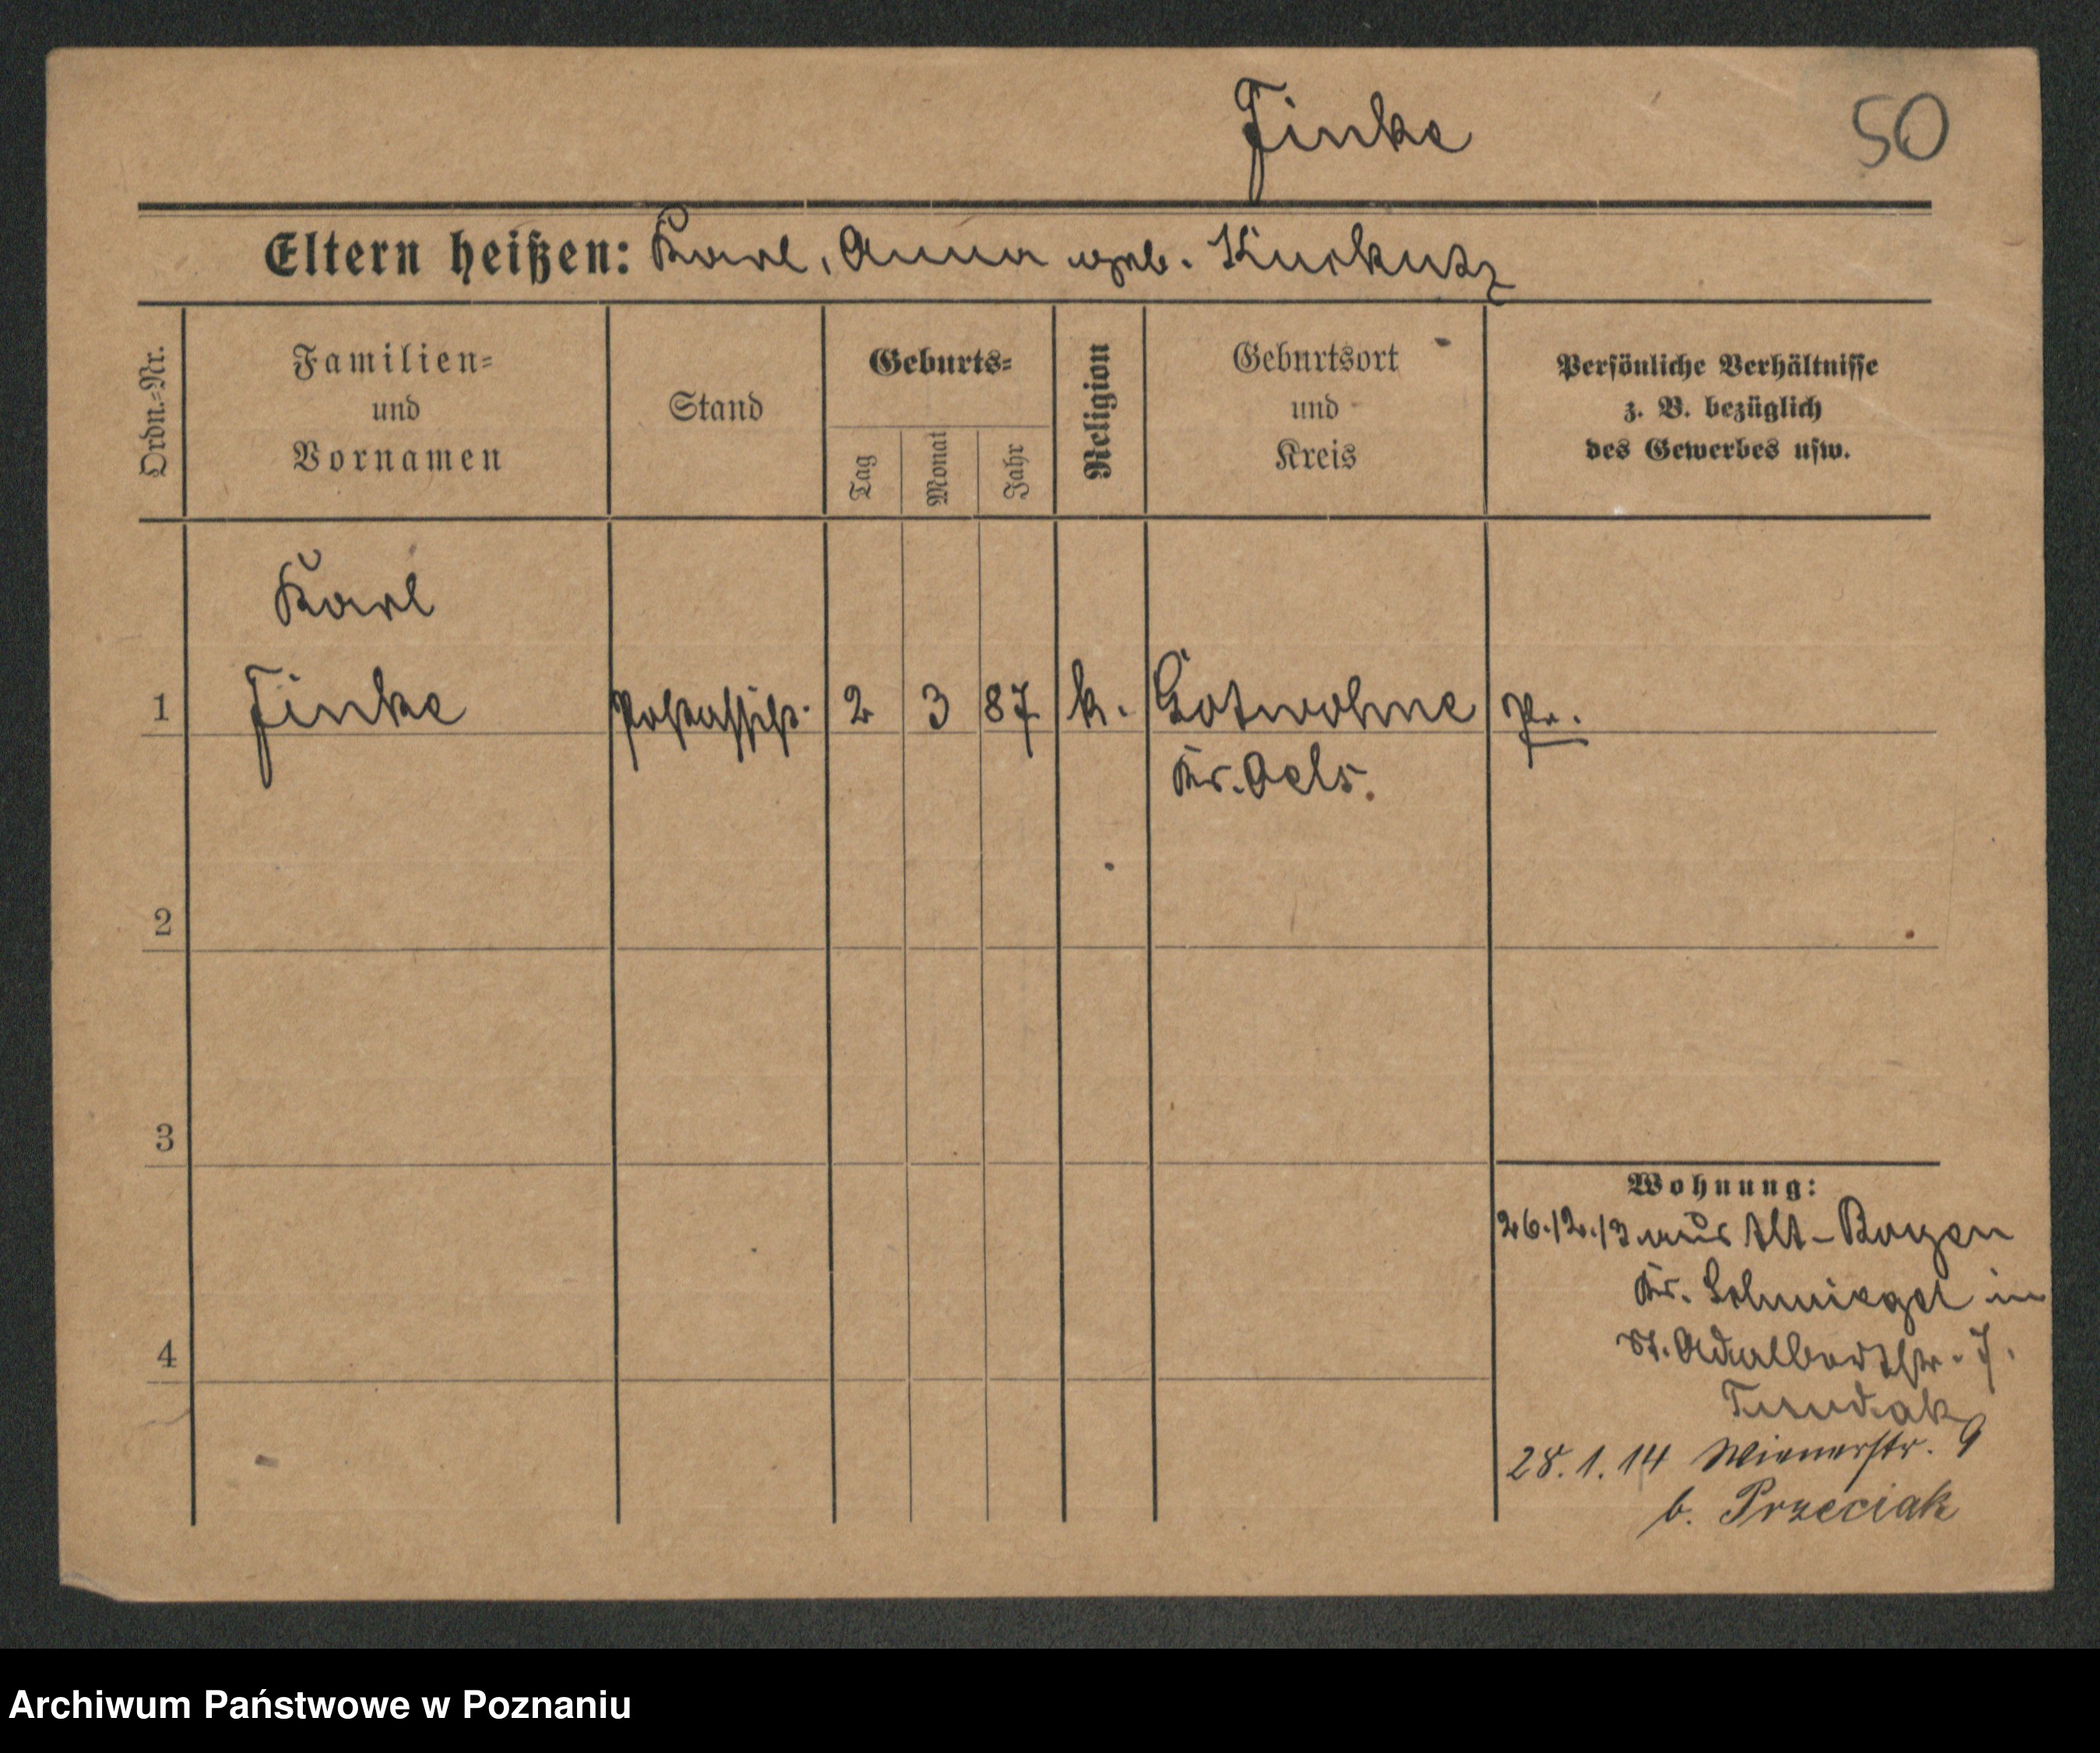 Finke
50
Eltern heißen: Karl, Anna geb. Kuckutz
Ordn.-Nr.
Familien-
und
Vornamen
Stand
Geburts-
Tag
Monat
Jahr
Religion
Geburtsort
und
Kreis
Persönliche Verhältnisse
z. B. bezüglich
des Gewerbes usw.
Karl
1 Finke Postassist. 2 3 87 k. Gotwohne Pr.
Kr. Oels.
2
3
4
Wohnung:
26.12.13 aus Alt-Boyen
Kr. Schmiegel in
St. Adalbertstr. 7.
28.1.14 Wienerstr. 9
b. Przeciak
Archiwum Państwowe w Poznaniu